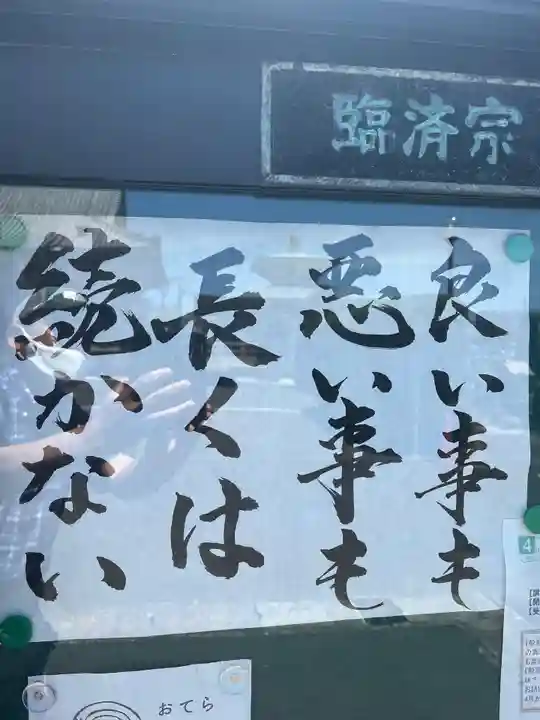 臨済宗
良い事も
悪い事も
長くは
続かない
4
おてら